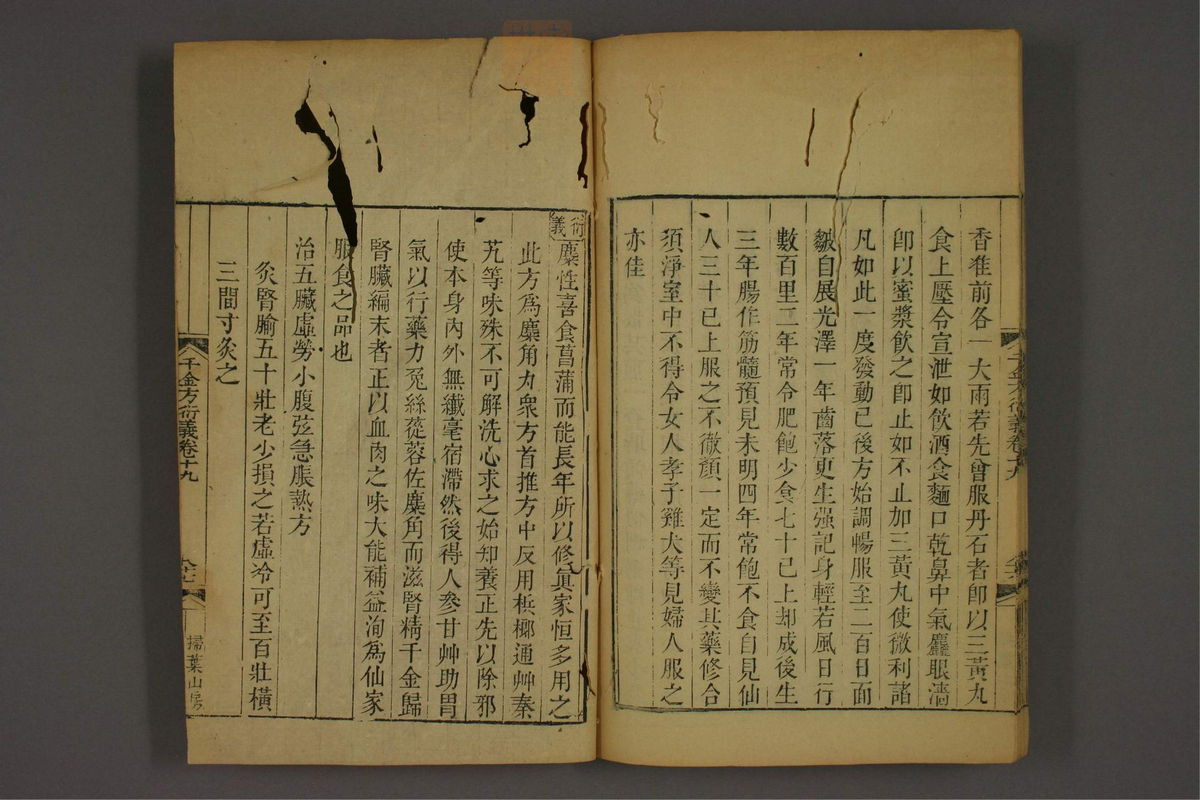 香准前各一大兩若先曾服丹石者卽以三黃丸
食上壓令宣泄如飲酒食麵口乾鼻中氣麤眼澀
卽以蜜漿飲之卽止如不止加三黃丸使微利諸
凡如此一度發動已後方始調暢服至二百日面
皺自展光澤一年齒落更生强記身輕若風日行
數百里二年常令肥飽少食七十已上却成後生
三年腸作筋髓預見未明四年常飽不食自見仙
人三十已上服之不徹顏一定而不變其藥修合
須淨室中不得令女人孝子雞犬等見婦人服之
亦佳
千金方衍義卷十九
衍義麋性喜食菖蒲而能長年所以修眞家恒多用之
此方爲麋角丸衆方首推方中反用梹榔通艸秦
艽等味殊不可解洗心求之始知養正先以除邪
使本身內外無纖毫宿滯然後得人參甘艸助胃
氣以行藥力兔絲蓯蓉佐麋角而滋腎精千金歸
腎臟編末者正以血肉之味大能補益洵爲仙家
服食之品也
治五臟虛勞小腹弦急脹熱方
灸腎腧五十壯老少損之若虛冷可至百壯橫
三間寸灸之
千金方衍義卷十九
掃葉山房